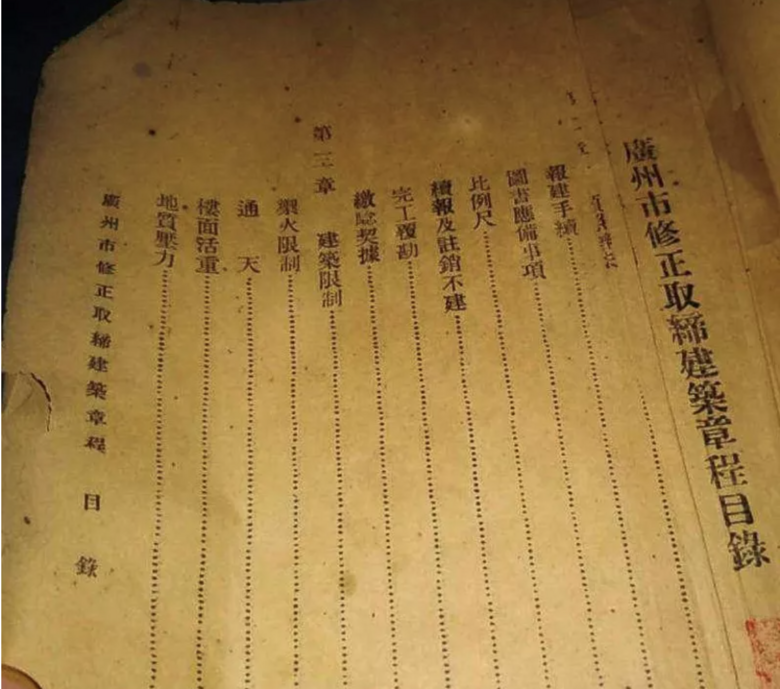 廣州市修正取締建築章程目錄
報建手續
圖書應備事項
比例尺
續報及註銷不建
完工覆勘
繳驗契據
第三章 建築限制
禦火限制
通 天
樓面活重
地質壓力
廣州市修正取締建築章程 目 錄